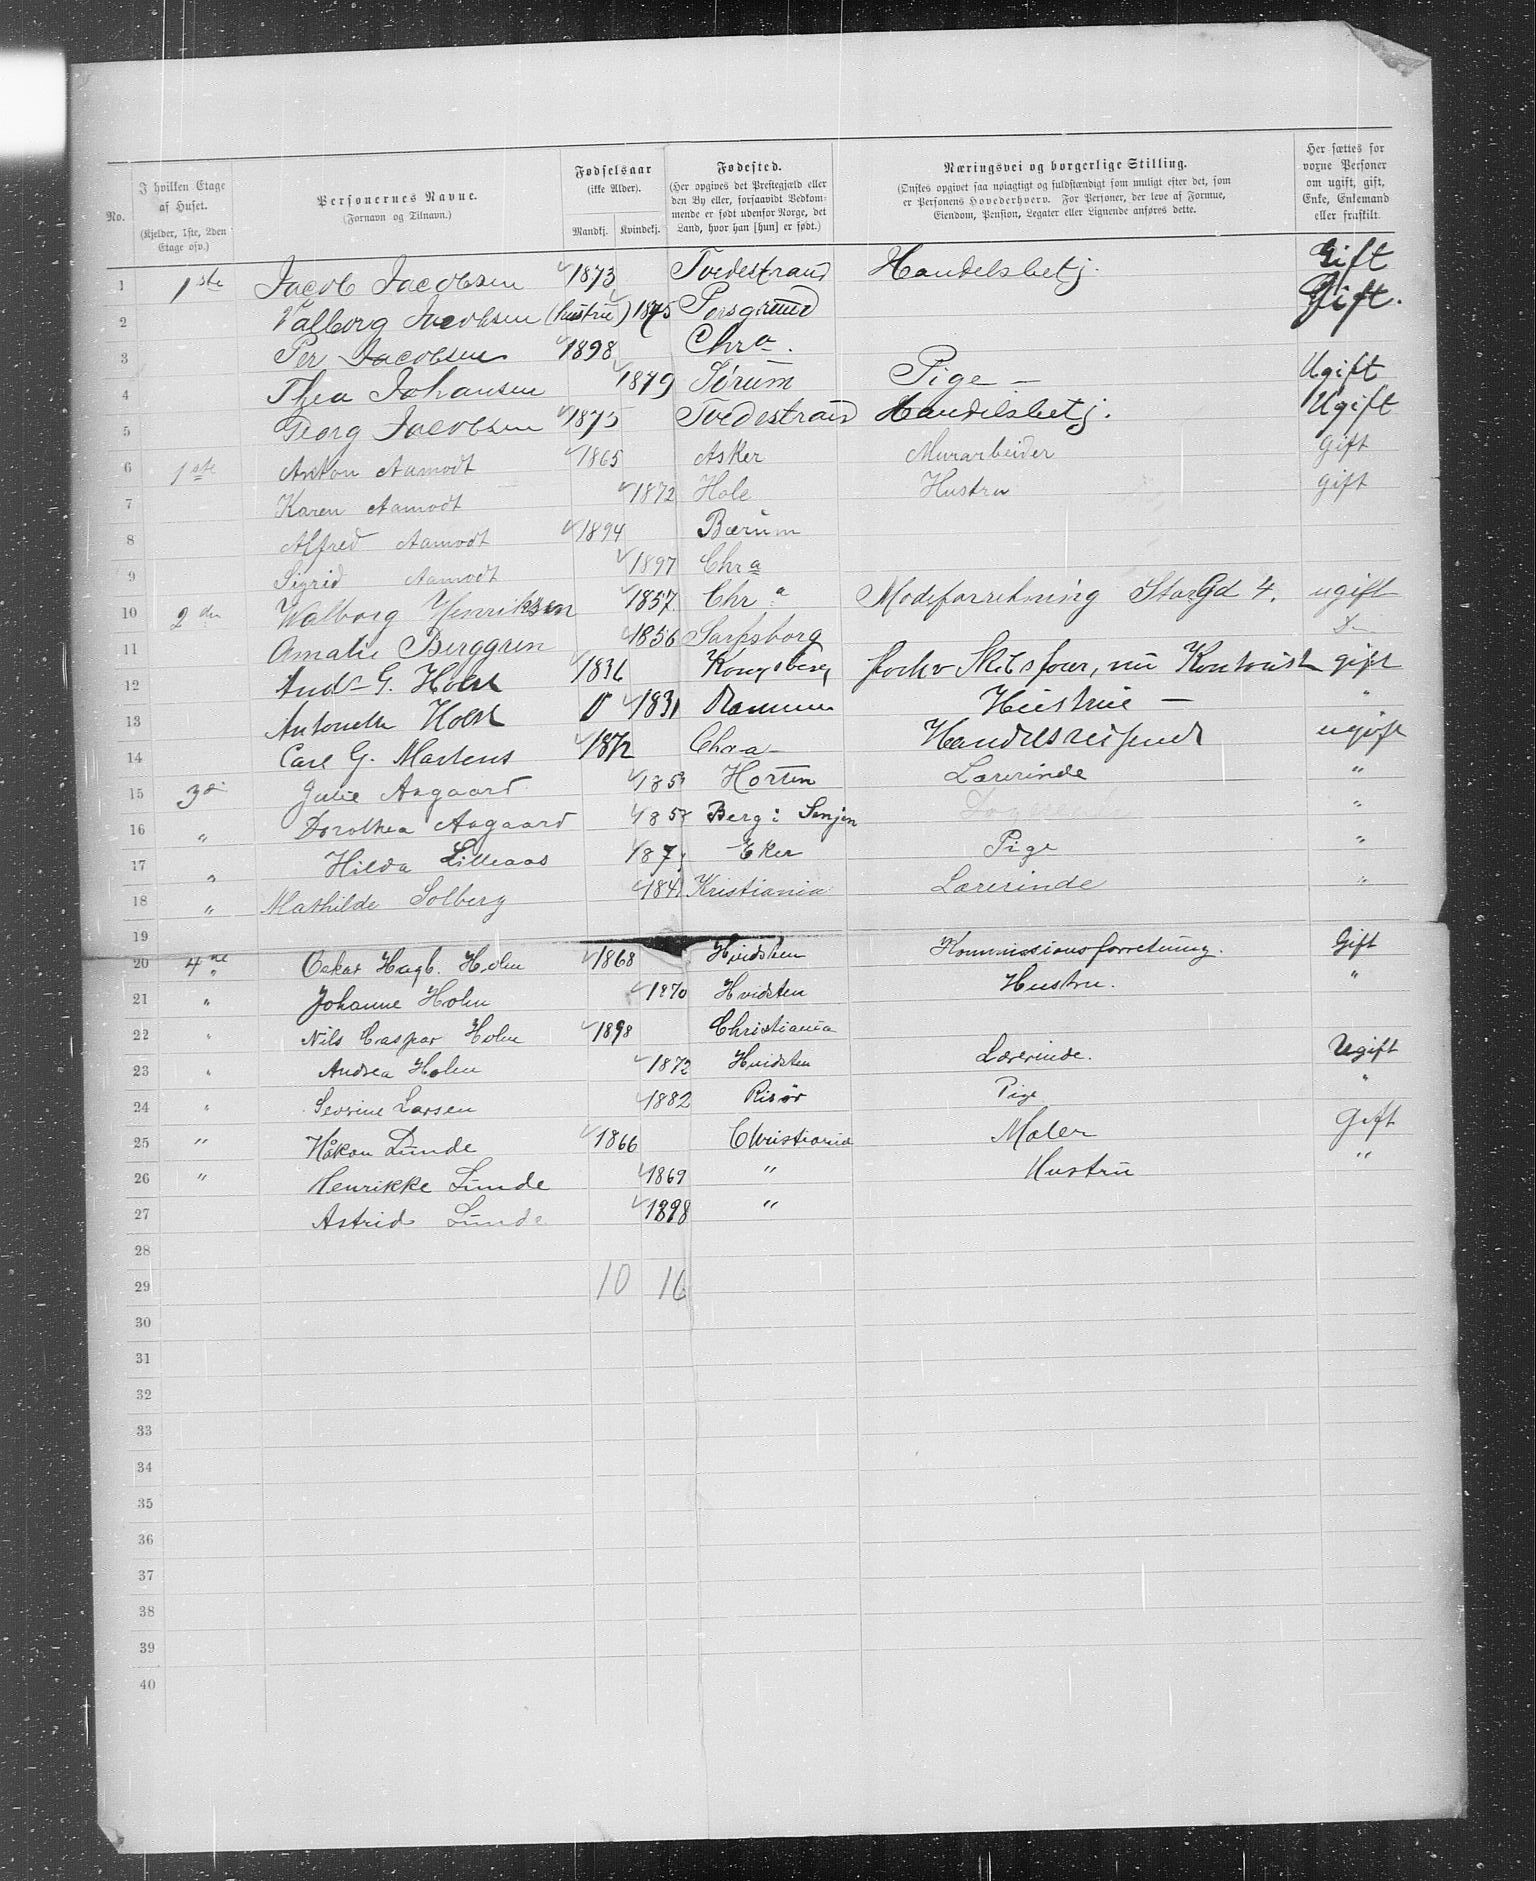 No. I hvilken Etage af Huset. (Kjelder, 1ste, 2den Etage osv.) Personernes Navne. (Fornavn og Tilnavn.) Fødselsaar (ikke Alder). Mandkj. Kvindekj. Fødested. (Her opgives det Prestegjæld eller den By eller, forsaavidt Vedkommende er født udenfor Norge, det Land, hvor han [hun] er født.) Næringsvei og borgerlige Stilling. (Ønskes opgivet saa nøiagtigt og fuldstændigt som muligt efter det, som er Personens Hovederhverv. For Personer, der leve af Formue, Eiendom, Pension, Legater eller Lignende anføres dette. Her sættes for voxne Personer om ugift, gift, Enke, Enkemand eller fraskilt.
1 1ste Jacob Jacobsen 1873 Tvedestrand Handelsbetj. Gift
2 Valborg Jacobsen (hustru) 1875 Porsgrund Gift.
3 Per Jacobsen 1898 Chra.
4 Thea Johansen 1879 Sørum Pige – Ugift
5 Georg Jacobsen 1875 Tvedestrand Handelsbetj. Ugift
6 1ste Anton Aamodt 1865 Asker Murarbeider gift
7 Karen Aamodt 1872 Hole Hustru gift
8 Alfred Aamodt 1894 Bærum
9 Sigrid Aamodt 1897 Chra
10 2den Walborg Henriksen 1857 Chra Modeforretning StorGd 4. ugift
11 Amalie Berggren 1856 Sarpsborg
12 Andr G. Holst 1836 Kongsberg forhv Skibsfører, nu Kontorist gift
13 Antonette Holst 1831 Hustrue – "
14 Carl G. Martens 1872 Chra – Handelsreisende ugift
15 3de Julie Aagaard 185 Horten Lærerinde "
16 " Dorothea Aagaard 185 Berg i Senjen "
17 " Hilda Lilleaas 187 Eker Pige "
18 " Mathilde Solberg 184 Kristiania Lærerinde "
19
20 4de Oskar Hagb. Holm 1868 Hvidsten Kommissionsforretning. Gift
21 " Johanne Holm 1870 Hvidsten Hustru. "
22 " Nils Caspar Holm 1898 Christiania
23 " Andrea Holm 1872 Hvidsten Lærerinde. Ugift
24 " Severine Larsen 1882 Risør Pige "
25 " Håkon Lunde 1866 Christiania Maler Gift
26 " Henrikke Lunde 1869 " Hustru "
27 Astrid Lunde 1898 "
28
29 10 16
30
31
32
33
34
35
36
37
38
39
40